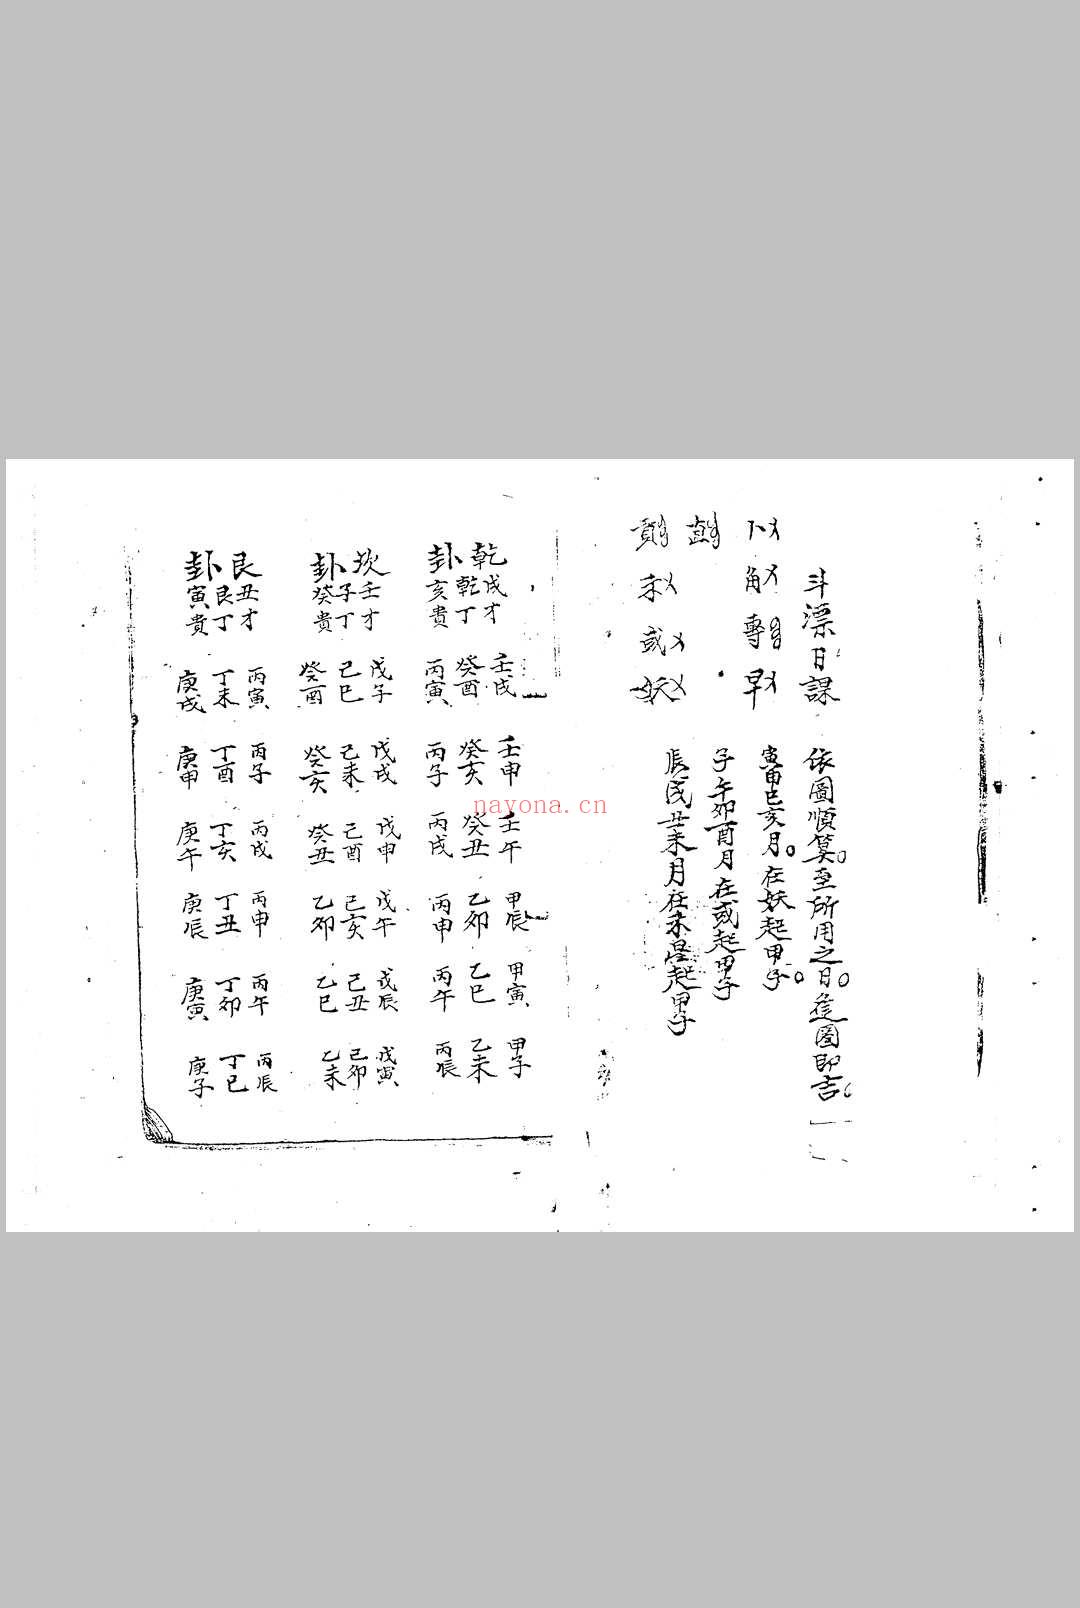 斗漂日課
依圖順算至所用之日隹圈即吉
以角專早
寅申巳亥月在妖起甲子
直
子午卯酉月在或起甲子
貢未或妖
辰戌丑未月在未星起甲子
乾卦
戌才
乾丁
亥貴
壬戌 壬申 壬午 甲辰 甲寅 甲子
癸酉 癸亥 癸丑 乙卯 乙巳 乙未
丙寅 丙子 丙戌 丙申 丙午 丙辰
坎卦
壬才
子丁
癸貴
戊子 戊戌 戊申 戊午 戊辰 戊寅
己巳 己未 己酉 己亥 己丑 己卯
癸酉 癸亥 癸丑 乙卯 乙巳 乙未
艮卦
丑才
艮丁
寅貴
丙寅 丙子 丙戌 丙申 丙午 丙辰
丁未 丁酉 丁亥 丁丑 丁卯 丁巳
庚戌 庚申 庚午 庚辰 庚寅 庚子
nayona.cn